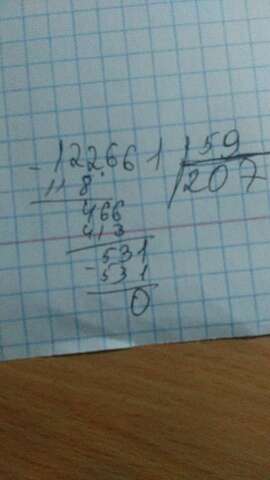 - 122661 | 59
118. 207
466
413
- 531
531
0